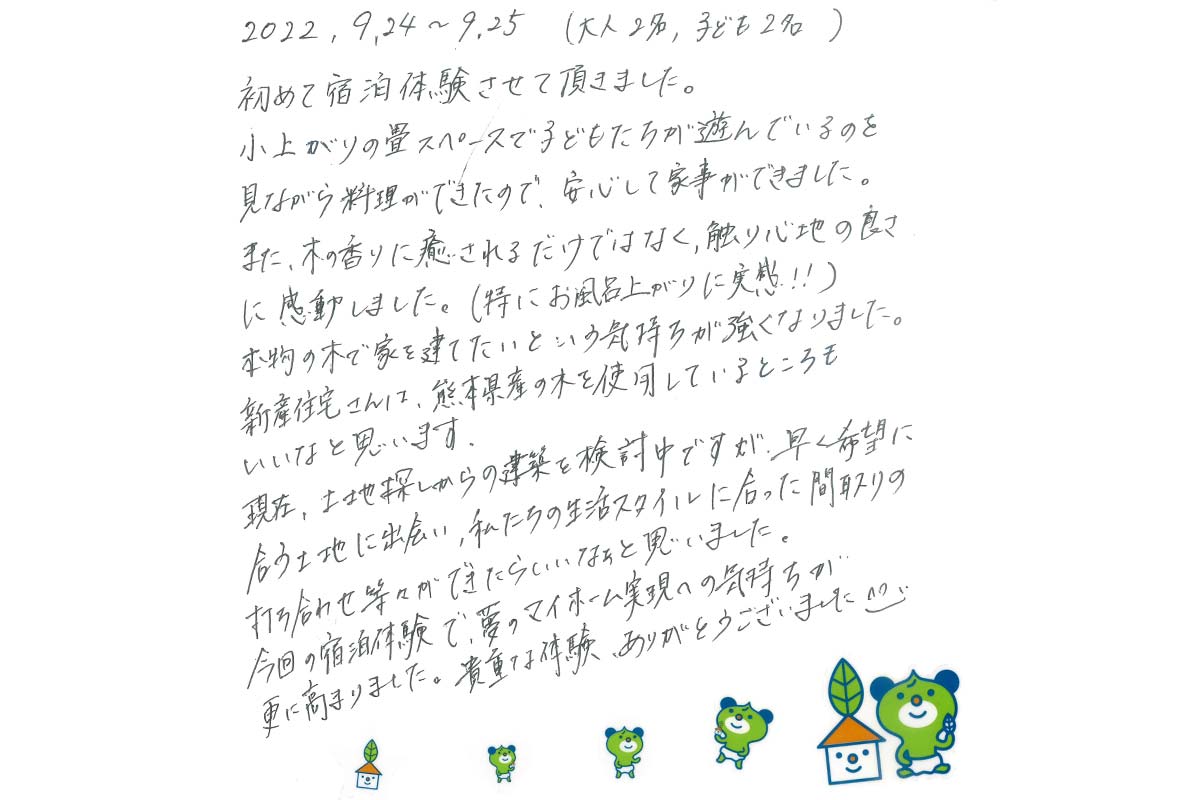 2022, 9,24～9,25 (大人2名, 子ども2名 )
初めて宿泊体験させて頂きました。
小上がりの畳スペースで子どもたちが遊んでいるのを
見ながら料理ができたので、安心して家事ができました。
また、木の香りに癒されるだけではなく、触り心地の良さ
に感動しました。(特にお風呂上がりに実感!!)
本物の木で家を建てたいという気持ちが強くなりました。
新産住宅さんは、熊本県産の木を使用しているところも
いいなと思います.
現在、土地探しからの建築を検討中ですが、早く希望に
合う土地に出会い,私たちの生活スタイルに合った間取りの
打ち合わせ等々ができたらいいなぁと思いました。
今回の宿泊体験で、夢のマイホーム実現への気持ちが
更に高まりました。貴重な体験、ありがとうございました^^